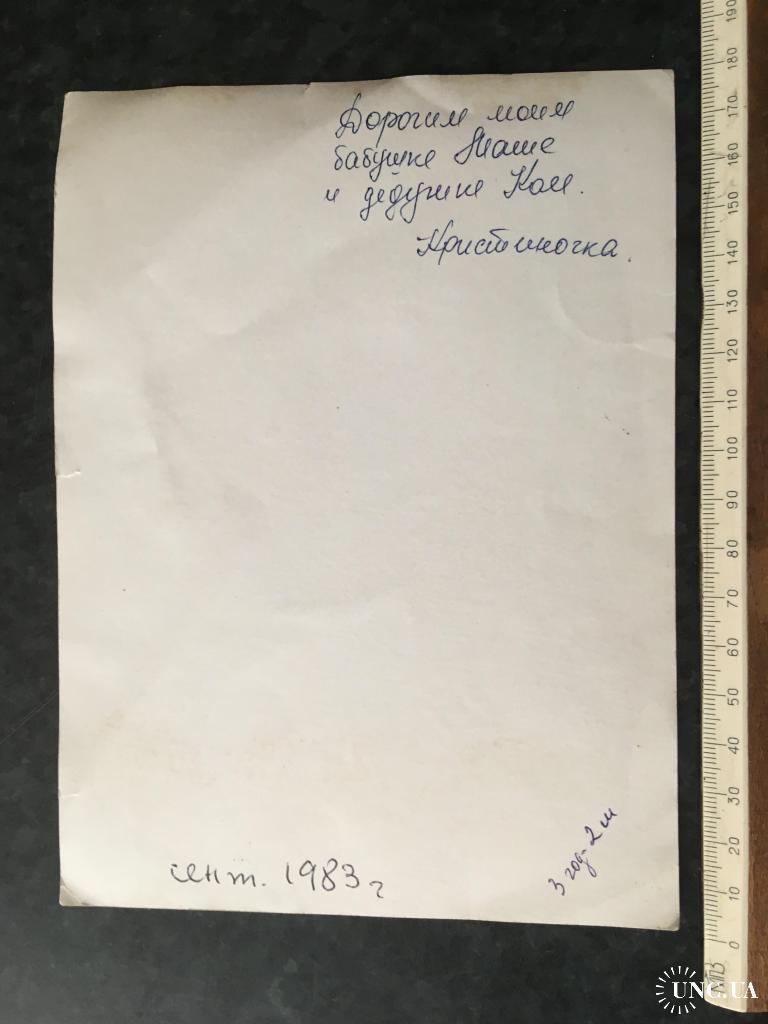 Дорогим моим
бабушке Маше
и дедушке Кол.
Кристиночка.
сент. 1983 г
3 год. 2 м
190
180
170
160
150
140
130
120
110
100
90
80
70
60
50
40
30
20
10
0
МПЗ
UNC.UA